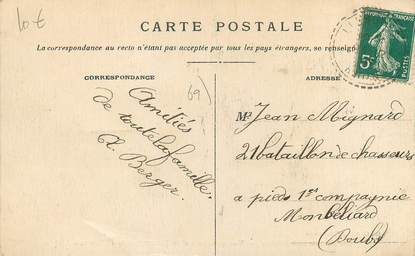 10 €
CARTE POSTALE
La correspondance au recto n'étant pas acceptée par tous les pays étrangers, se renseigner
CORRESPONDANCE
ADRESSE
69
Amitiés
de toute la famille.
A. Berger.
Mr Jean Mignard
21 bataillon de chasseurs
a pieds 1re compagnie
Monbéliard
(Doubs)
REPUBLIQUE FRANÇAISE
5c
POSTES